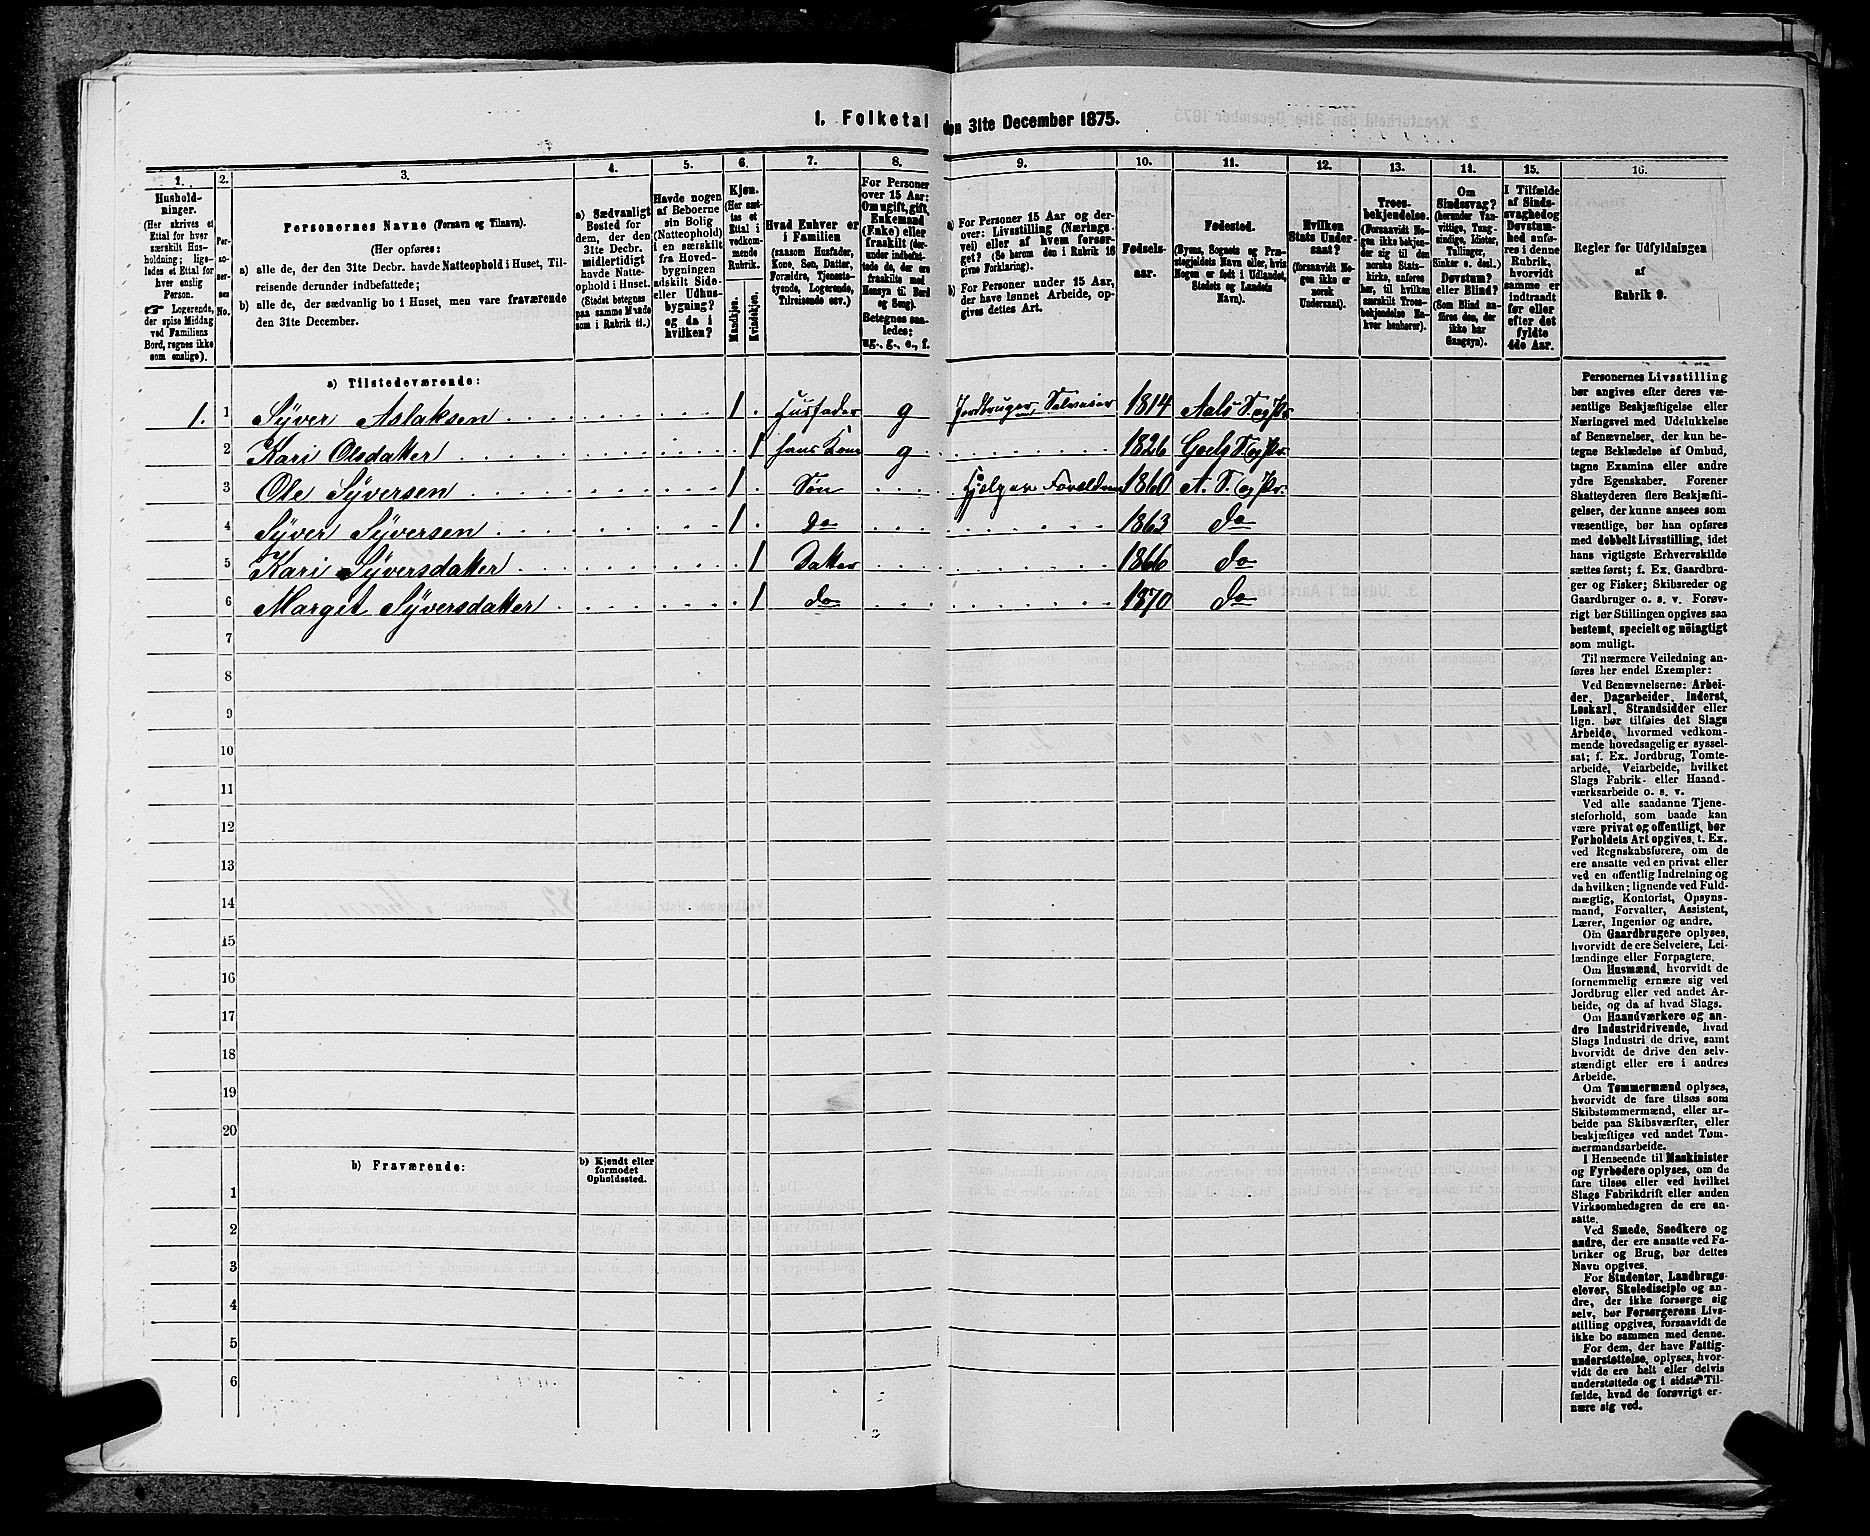 1. Folketal den 31te December 1875.
1. 2. 3. 4. 5. 6. 7. 8. 9. 10. 11. 12. 13. 14. 15. 16.
Hushold-
ninger.
(Her skrives et
Ettal for hver
særskilt Hus-
holdning; lige-
ledes et Ettal for
hver enslig
Person.
☞ Logerende,
der spise Middag
ved Familiens
Bord, regnes ikke
som enslige).
Per-
so-
ner-
nes
No.
Personernes Navne (Fornavn og Tilnavn).
(Her opføres:
a) alle de, der den 31te Decbr. havde Natteophold i Huset, Til-
reisende derunder indbefattede;
b) alle de, der sædvanlig bo i Huset, men vare fraværende
den 31te December.
a) Sædvanligt
Bosted for
dem, der den
31te Decbr.
midlertidigt
havde Natte-
ophold i Huset.
(Stedet betegnes
paa samme Maade
som i Rubrik 11.)
Havde nogen
af Beboerne
sin Bolig
(Natteophold)
i en særskilt
fra Hoved-
bygningen
adskilt Side-
eller Udhus-
bygning?
og da i
hvilken?
Kjøn.
(Her sæt-
tes et
Ettal i
vedkom-
mende
Rubrik.
Mandkjøn.
Kvindekjøn.
Hvad Enhver er
i Familien
(saasom Husfader,
Kone, Søn, Datter,
Forældre, Tjeneste-
tyende, Logerende,
Tilreisende osv.)
For Personer
over 15 Aar:
Om ugift, gift,
Enkemand
(Enke) eller
fraskilt (der-
under indbefat-
tede de, der ere
fraskilte med
Hensyn til Bord
og Seng).
Betegnes saa-
ledes:
ug., g., e., f.
a) For Personer 15 Aar og der-
over: Livsstilling (Nærings-
vei) eller af hvem forsør-
get? (Se herom den i Rubrik 16
givne Forklaring).
b) For Personer under 15 Aar,
der have lønnet Arbeide, op-
gives dettes Art.
Fødsels-
aar.
Fødested.
(Byens, Sognets og Præ-
stegjeldets Navn eller, hvis
Nogen er født i Udlandet,
Stedets og Landets
Navn).
Hvilken
Stats Under-
saat?
(forsaavidt No-
gen ikke er
norsk
Undersaat).
Troes-
bekjendelse.
(Forsaavidt No-
gen ikke bekjen-
der sig til den
norske Stats-
kirke, anføres
her, til hvilken
særskilt Troes-
bekjendelse En-
hver henhører).
Om
Sindssvag?
(herunder Van-
vittige, Tung-
sindige, Idioter,
Tullinger,
Sinker o. desl.)
Døvstum?
eller Blind?
(Som Blind an-
føres den, der
ikke har
Gangsyn).
I Tilfælde
af Sinds-
svaghed og
Døvstum-
hed anfø-
res i denne
Rubrik,
hvorvidt
samme er
indtraadt
før eller
efter det
fyldte
4de Aar.
Regler for Udfyldningen
af
Rubrik 9.
a) Tilstedeværende:
1. 1 Syver Aslaksen 1 Husfader g Jordbruger Selveier 1814 Aals S. og Pr.
2 Kari Olsdatter 1 hans Kone g 1826 Goels S. og Pr.
3 Ole Syversen 1 Søn Hjelper Forældrene 1860 A. S. og Pr.
4 Syver Syversen 1 do 1863 do
5 Kari Syversdatter 1 Datter 1866 do
6 Margit Syversdatter 1 do 1870 do
7
8
9
10
11
12
13
14
15
16
17
18
19
20
b) Fraværende:
b) Kjendt eller
formodet
Opholdssted.
1
2
3
4
5
6
Personernes Livsstilling
bør angives efter deres væ-
sentlige Beskjæftigelse eller
Næringsvei med Udelukkelse
af Benævnelser, der kun be-
tegne Beklædelse af Ombud,
tagne Examina eller andre
ydre Egenskaber. Forener
Skatteyderen flere Beskjæfti-
gelser, der kunne ansees som
væsentlige, bør han opføres
med dobbelt Livsstilling, idet
hans vigtigste Erhvervskilde
sættes først; f. Ex. Gaardbru-
ger og Fisker; Skibsreder og
Gaardbruger o. s. v. Forøv-
rigt bør Stillingen opgives saa
bestemt, specielt og nöiagtigt
som muligt.
Til nærmere Veiledning an-
føres her endel Exempler:
Ved Benævnelserne: Arbei-
der, Dagarbeider, Inderst,
Løskarl, Strandsidder eller
lign. bør tilføies det Slags
Arbeide, hvormed vedkom-
mende hovedsagelig er syssel-
sat; f. Ex. Jordbrug, Tomte-
arbeide, Veiarbeide, hvilket
Slags Fabrik- eller Haand-
værksarbeide o. s. v.
Ved alle saadanne Tjene-
steforhold, som baade kan
være privat og offentligt, bør
Forholdets Art opgives, t. Ex.
ved Regnskabsførere, om de
ere ansatte ved en privat eller
ved en offentlig Indretning og
da hvilken; lignende ved Fuld-
mægtig, Kontorist, Opsyns-
mand, Forvalter, Assistent,
Lærer, Ingeniør og andre.
Om Gaardbrugere oplyses,
hvorvidt de ere Selveiere, Lei-
lændinge eller Forpagtere.
Om Husmænd, hvorvidt de
fornemmelig ernære sig ved
Jordbrug eller ved andet Ar-
beide, og da af hvad Slags.
Om Haandværkere og an-
dre Industridrivende, hvad
Slags Industri de drive, samt
hvorvidt de drive den selv-
stændigt eller ere i andres
Arbeide.
Om Tømmermænd oplyses,
hvorvidt de fare tilsøs som
Skibstømmermænd, eller ar-
beide paa Skibsværfter, eller
beskjæftiges ved andet Tøm-
mermandsarbeide.
I Henseende til Maskinister
og Fyrbødere oplyses, om de
fare tilsøs eller ved hvilket
Slags Fabrikdrift eller anden
Virksomhedsgren de ere an-
satte.
Ved Smede, Snedkere og
andre, der ere ansatte ved Fa-
briker og Brug, bør dettes
Navn opgives.
For Studenter, Landbrugs-
elever, Skoledisciple og an-
dre, der ikke forsørge sig
selv, bør Forsørgerens Livs-
stilling opgives, forsaavidt de
ikke bo sammen med denne.
For dem, der have Fattig-
understøttelse, oplyses, hvor-
vidt de ere helt eller delvis
understøttede og i sidste Til-
fælde, hvad de forøvrigt er-
nære sig ved.